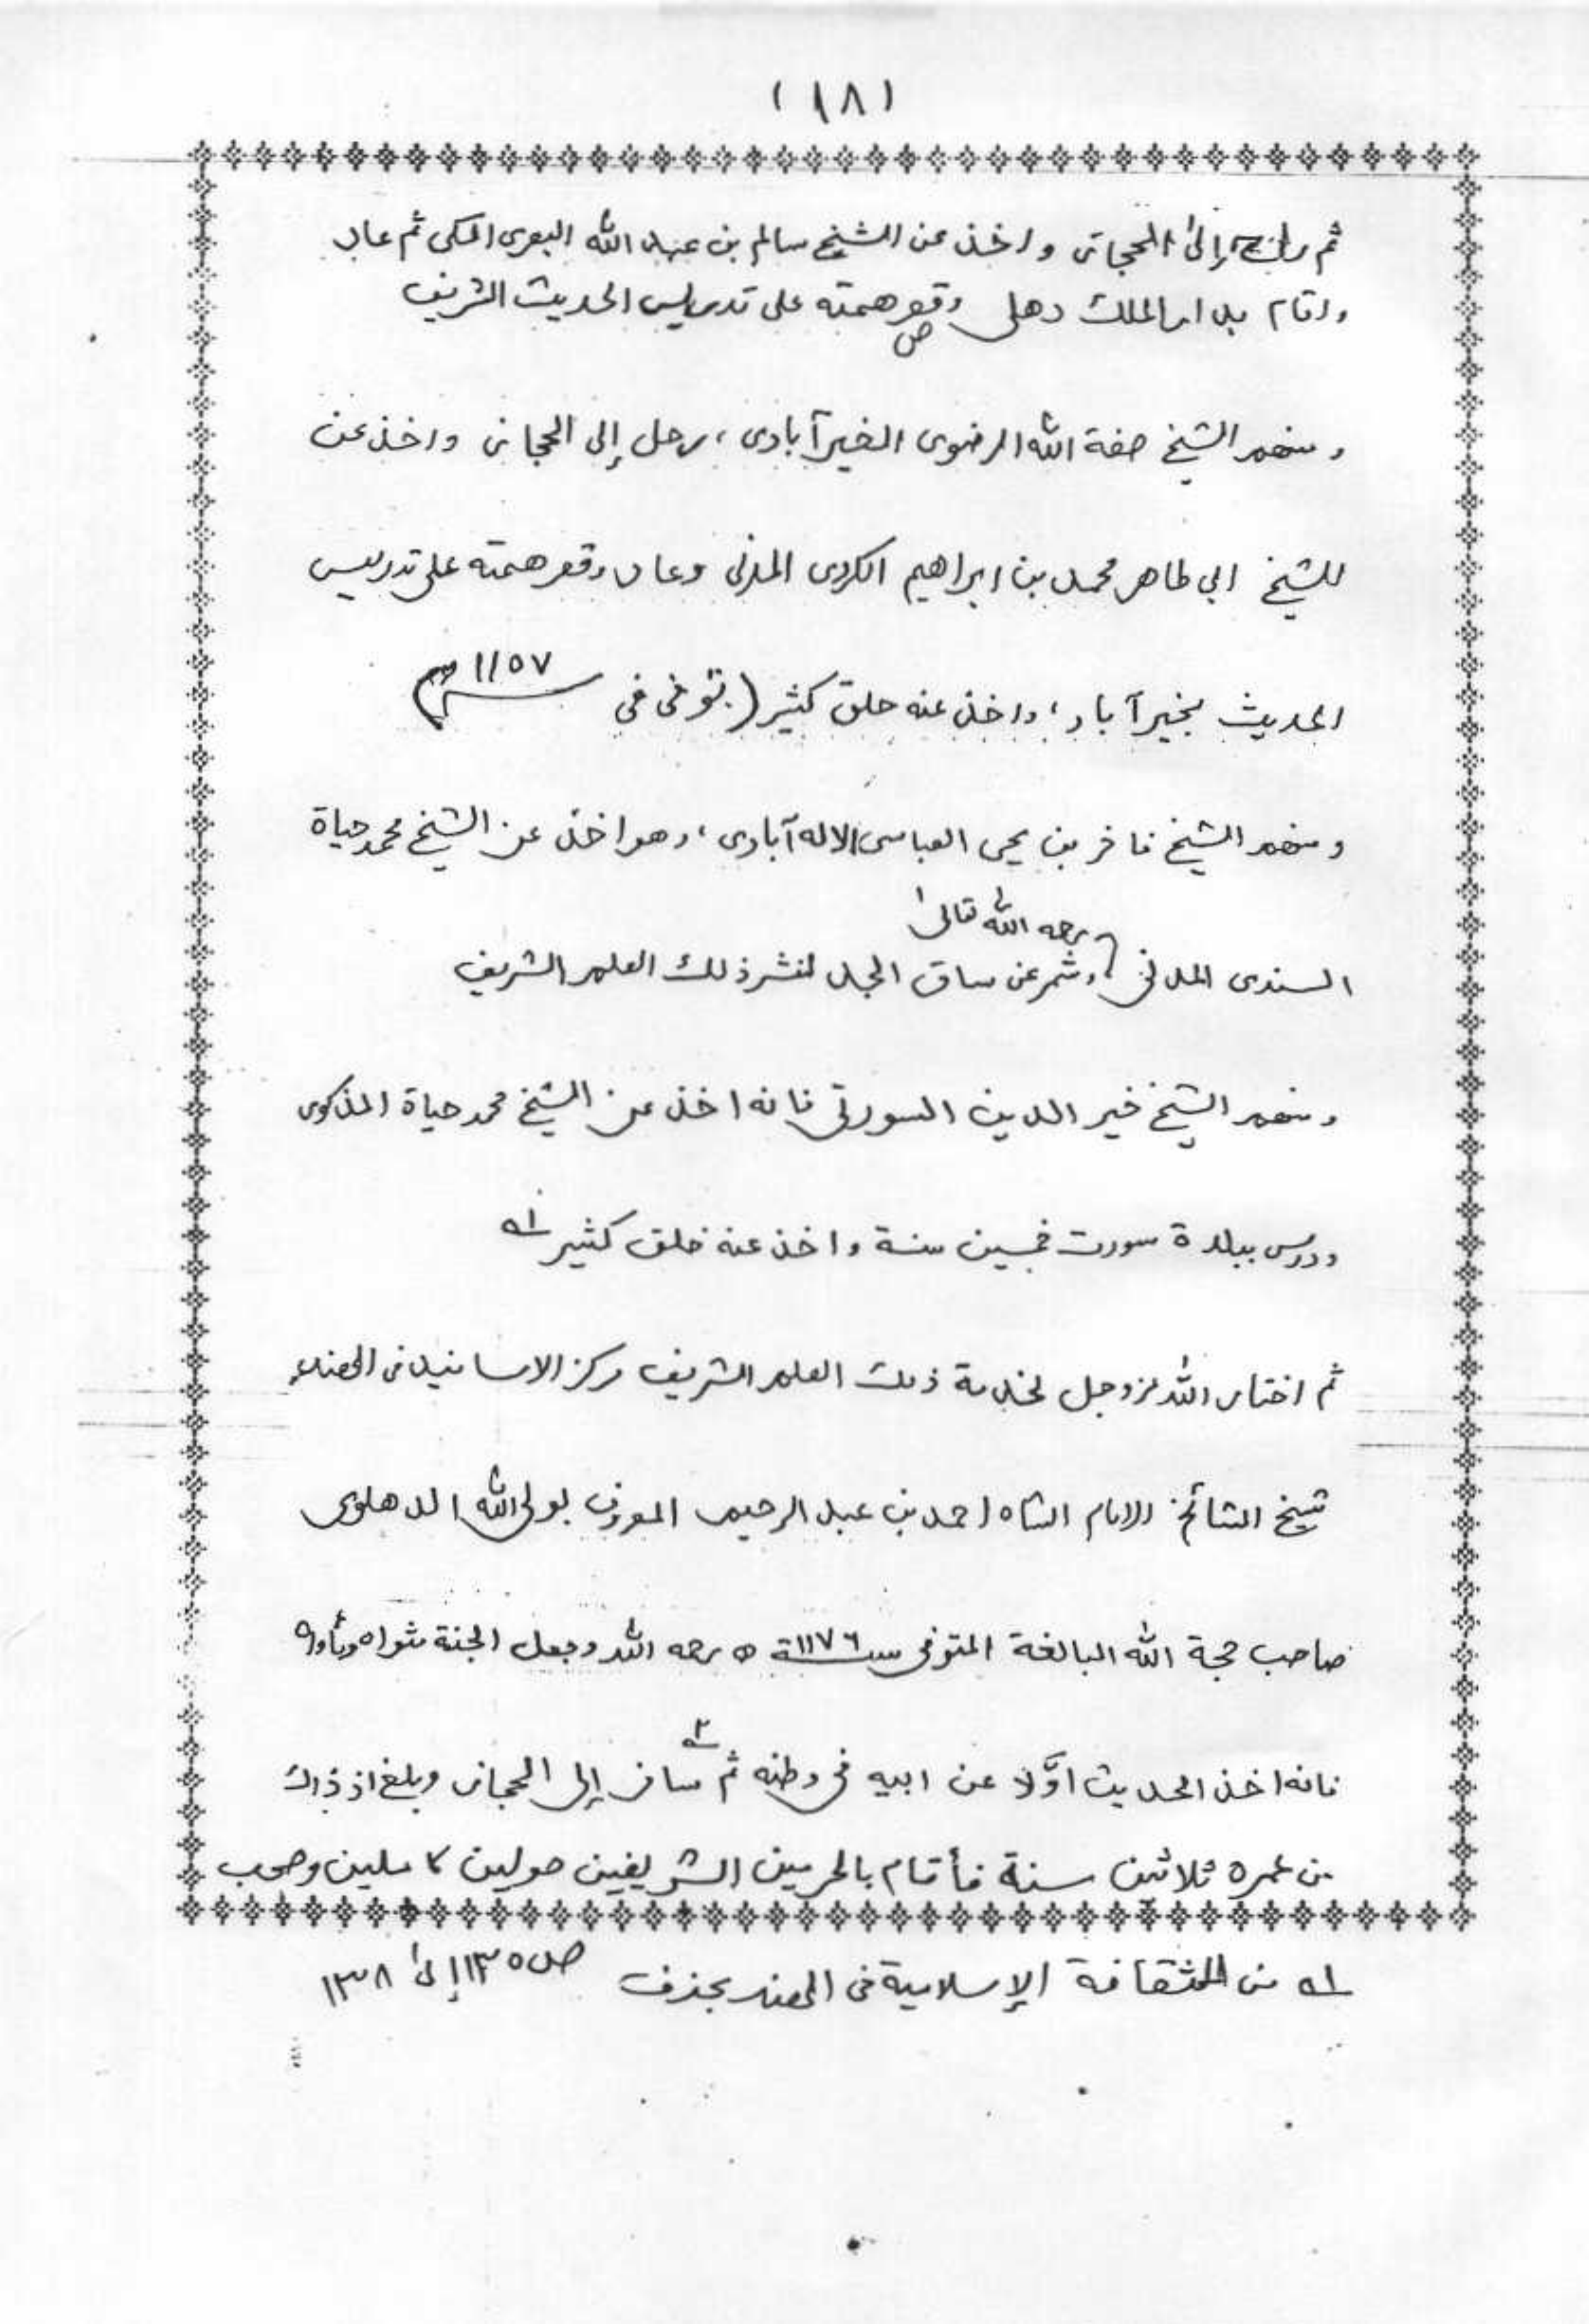 (١٨)
ثم رحل إلى الحجاز واخذ عن الشيخ سالم بن عبد الله البصرى المكى ثم عاد
واقام بدار الملك دهلى وقصر همته على تدريس الحديث الشريف
ومنهم الشيخ صفة الله الرضوى الخيرآبادى، رحل إلى الحجاز واخذ عن
للشيخ ابي طاهر محمد بن ابراهيم الكردى المدنى وعاد وقصر همته على تدريس
الحديث بخيرآباد، واخذ عنه خلق كثير (توفى فى ١١٥٧هـ)
ومنهم الشيخ فاخر بن يحيى العباسى الاله آبادى، وهو اخذ عن الشيخ محمد حياة
السندى المدنى رحمه الله تعالىٰ وشمر عن ساق الجد لنشر ذلك العلم الشريف
ومنهم الشيخ خير الدين السورتى فانه اخذ عن الشيخ محمد حياة المذكور
ودرس ببلدة سورت خمسين سنة واخذ عنه خلق كثير اه
ثم اختار الله عزوجل لخدمة ذلك العلم الشريف مركز الاسانيد فى الهند،
شيخ المشائخ الامام الشاه احمد بن عبد الرحيم المعروف بولى الله الدهلوى
صاحب حجة الله البالغة المتوفى سنة ١١٧٦ه رحمه الله وجعل الجنة مثواه ومأواه
فانه اخذ الحديث اوَّلا عن ابيه فى وطنه ثم ٢ سافر إلى الحجاز وبلغ اذ ذاك
من عمره ثلاثين سنة فأقام بالحرمين الشريفين حولين كاملين وصحب
اه من الثقافة الإسلامية فى الهند بحذف ص ١٣٥ إلىٰ ١٣٨